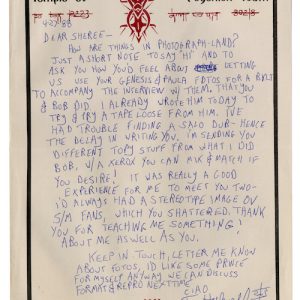 4-27-88
DEAR SHEREE—
HOW ARE THINGS IN PHOTOGRAPH-LAND?
JUST A SHORT NOTE TO SAY 'HI' AND TO
ASK YOU HOW YOU'D FEEL ABOUT LETTING
US USE YOUR GENESIS & PAULA FOTOS FOR A
TO ACCOMPANY THE INTERVIEW W/ THEM, THAT YOU
& BOB DID. I ALREADY WROTE HIM TODAY TO
TRY & PRY A TAPE LOOSE FROM HIM. I'VE
HAD TROUBLE FINDING A SALO DUB - HENCE
THE DELAY IN WRITING YOU. I'M SENDING YOU
DIFFERENT TOPY STUFF FROM WHAT I DID
BOB, W/ A XEROX YOU CAN MIX & MATCH IF
YOU DESIRE! IT WAS REALLY A GOOD
EXPERIENCE FOR ME TO MEET YOU TWO-
I'D ALWAYS HAD A STEREOTYPE IMAGE OV
S/M FANS, WHICH YOU SHATTERED. THANK
YOU FOR TEACHING ME SOMETHING!
ABOUT ME AS WELL AS YOU.
KEEP IN TOUCH, LETTER ME KNOW
ABOUT FOTOS, I'D LIKE SOME
FOR MYSELF ANYWAY. WE CAN DISCUSS
FORMAT & REPRO NEXT TIME
CIAO